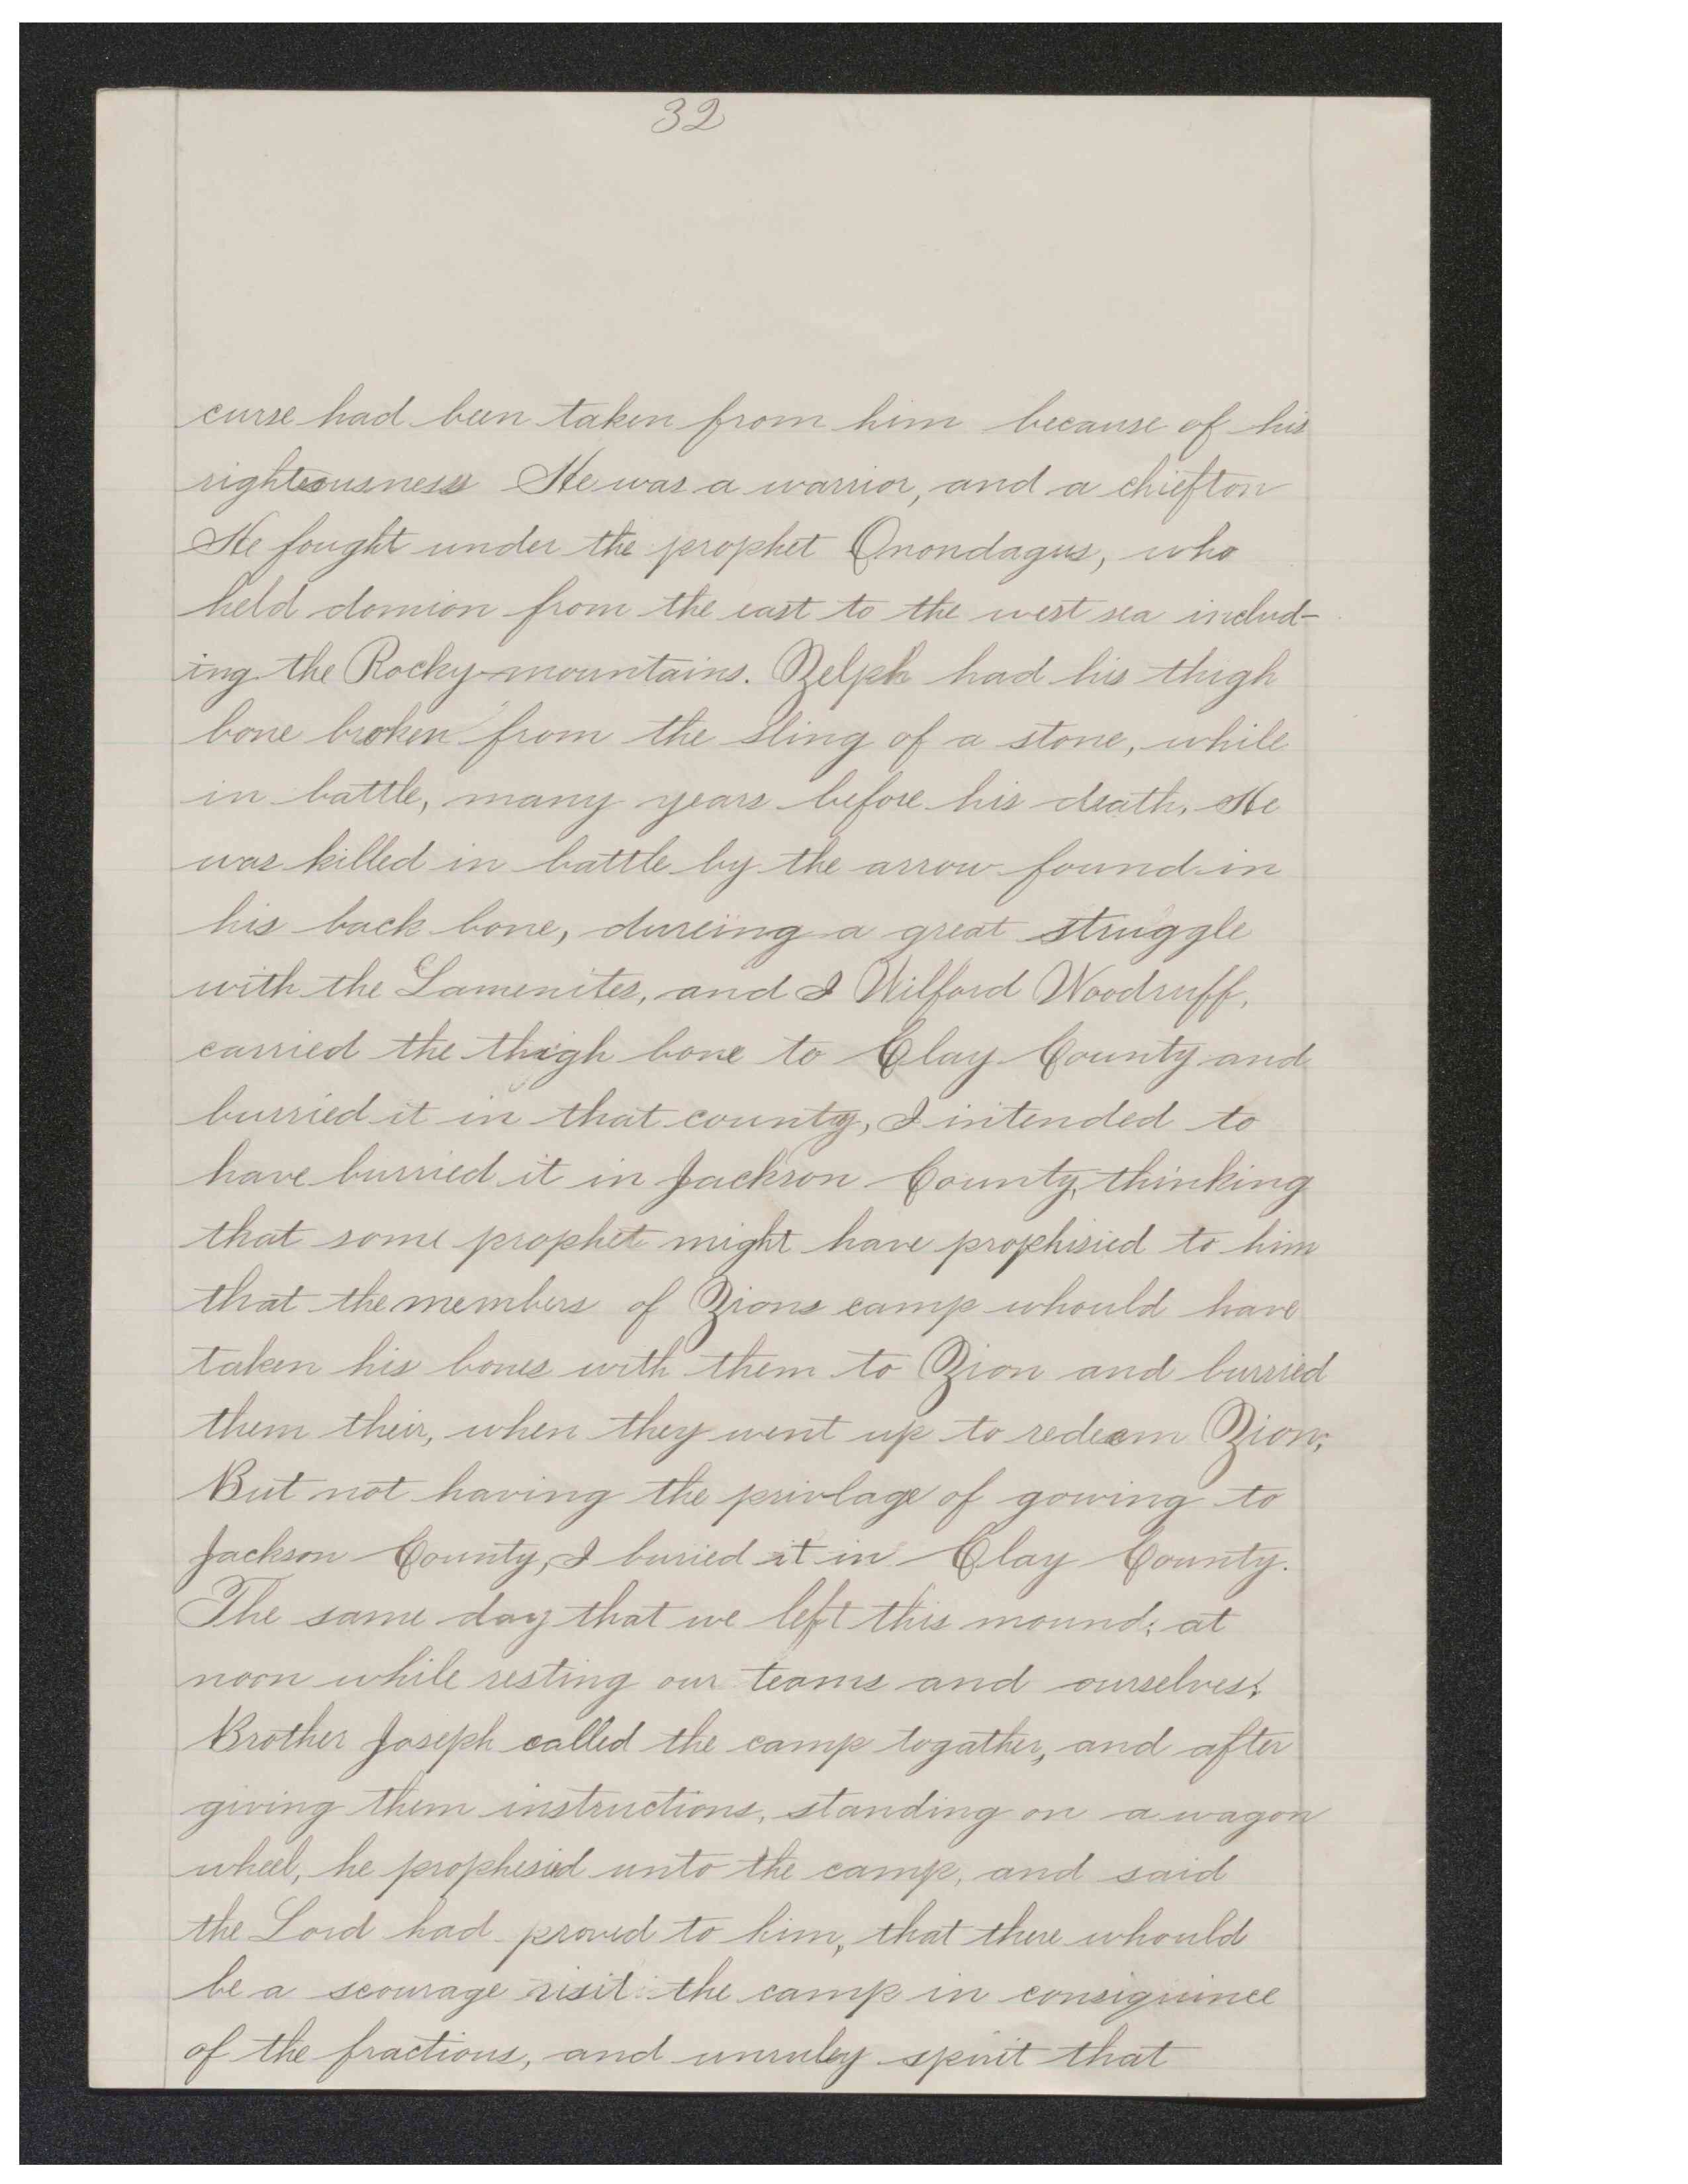 32
curse had been taken from him because of his
righteousness He was a warrior, and a chiefton
He fought under the prophet Onondagus, who
held domion from the east to the west sea includ-
ing the Rocky mountains. Zelph had his thigh
bone broken from the sling of a stone, while
in battle, many years before his death. He
was killed in battle by the arrow found in
his back bone, dureing a great struggle
with the Lamenites, and I Wilford Woodruff,
carried the thigh bone to Clay County and
burried it in that county, I intended to
have burried it in Jackson County, thinking
that some prophet might have prophisied to him
that the members of Zions camp whould have
taken his bones with them to Zion and burried
them their, when they went up to redeem Zion;
But not having the privlage of gowing to
Jackson County, I buried it in Clay County.
The same day that we left this mound; at
noon while resting our teams and ourselves;
Brother Joseph called the camp togather, and after
giving them instructions, standing on a wagon
wheel, he prophesied unto the camp, and said
the Lord had proved to him, that there whould
be a scourage visit the camp in consiquince
of the fractious, and unruley spirit that